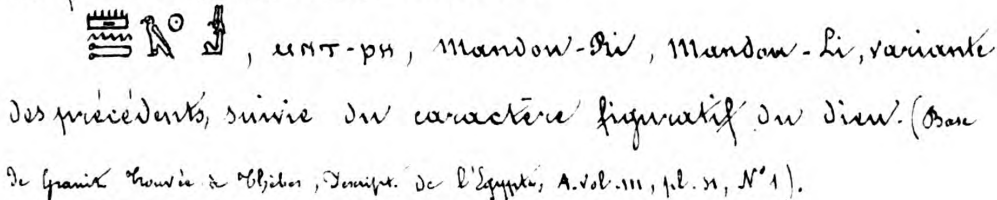 , ⲙⲛⲧ-ⲣⲏ, Mandou-Ri, Mandou-Li, variante
des précédents, suivie du caractère figuratif du dieu. (Base
de granit trouvée à Thèbes, Descript. de l'Égypte, A. vol. III, pl. 31, N° 1).